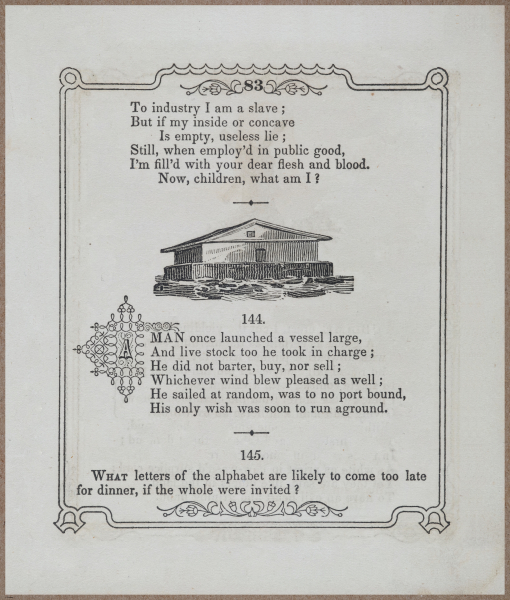 83
To industry I am a slave;
But if my inside or concave
Is empty, useless lie;
Still, when employ'd in public good,
I'm fill'd with your dear flesh and blood.
Now, children, what am I?
144.
A MAN once launched a vessel large,
And live stock too he took in charge;
He did not barter, buy, nor sell;
Whichever wind blew pleased as well;
He sailed at random, was to no port bound,
His only wish was soon to run aground.
145.
WHAT letters of the alphabet are likely to come too late
for dinner, if the whole were invited?